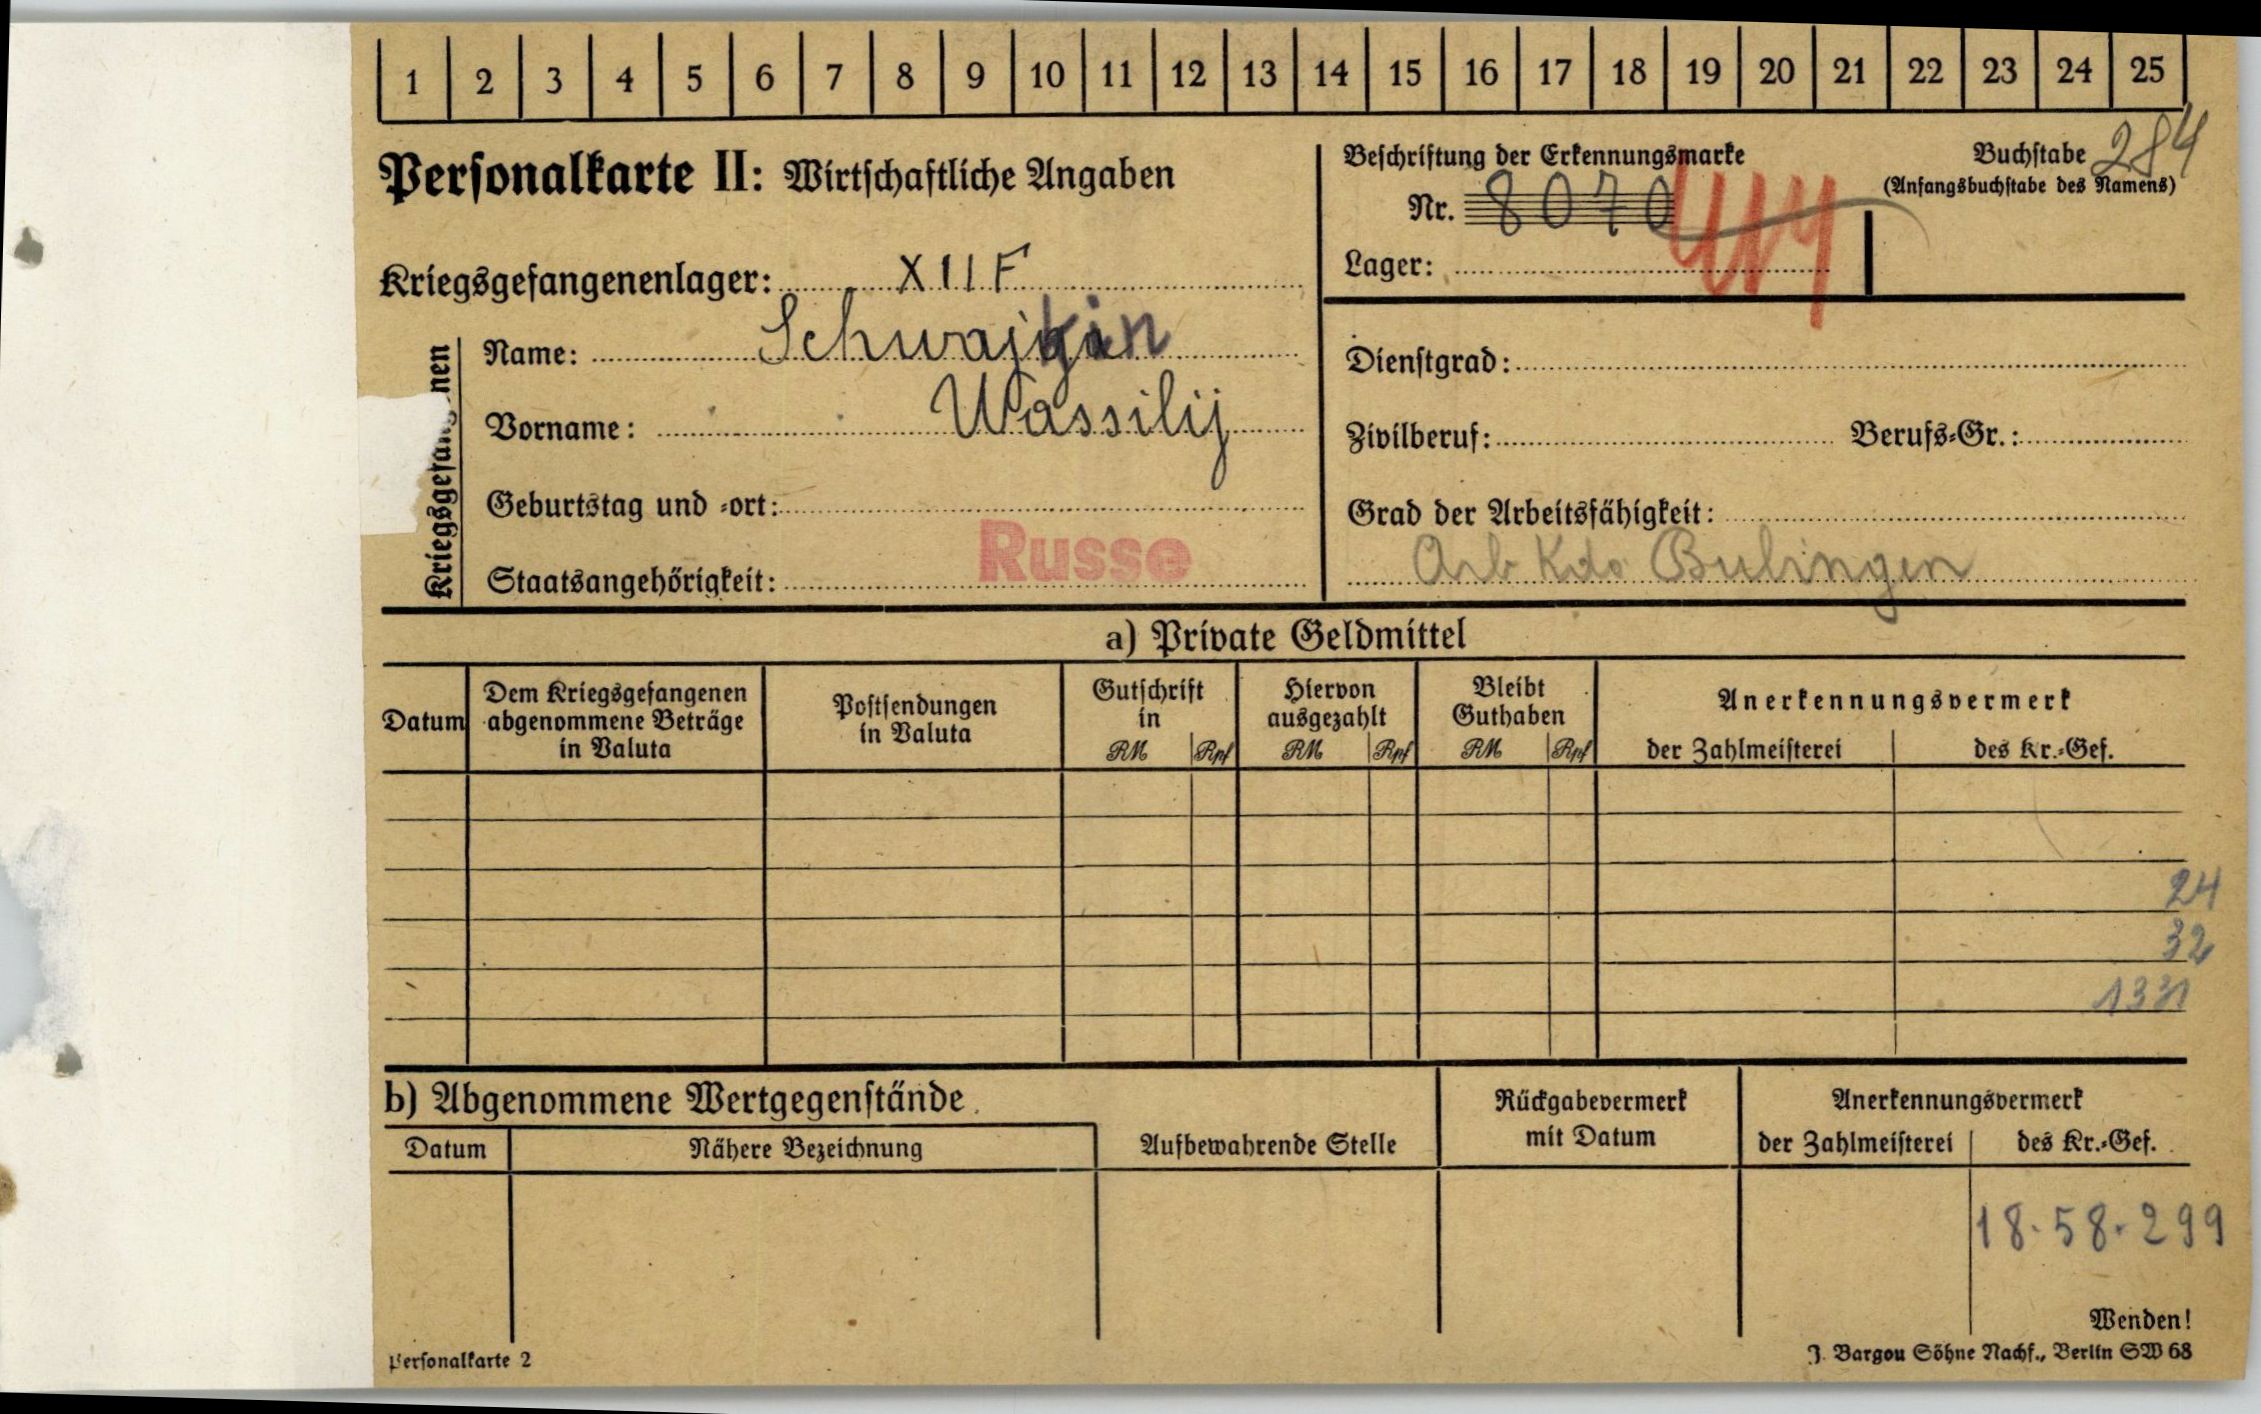 1 2 3 4 5 6 7 8 9 10 11 12 13 14 15 16 17 18 19 20 21 22 23 24 25
Personalkarte II: Wirtschaftliche Angaben
Kriegsgefangenenlager: XII F
Name:
Vorname: Wassilij
Geburtstag und -ort:
Staatsangehörigkeit: Russe
Beschriftung der Erkennungsmarke
Nr. 8070
Lager:
Buchstabe 284
(Anfangsbuchstabe des Namens)
Dienstgrad:
Zivilberuf: Berufs-Gr.:
Grad der Arbeitsfähigkeit:
Arb Kdo Bulingen
a) Private Geldmittel
Datum
Dem Kriegsgefangenen
abgenommene Beträge
in Valuta
Postsendungen
in Valuta
Gutschrift
in
RM Rpf
Hiervon
ausgezahlt
RM Rpf
Bleibt
Guthaben
RM Rpf
Anerkennungsvermerk
der Zahlmeisterei des Kr.-Gef.
24
32
1331
b) Abgenommene Wertgegenstände
Datum Nähere Bezeichnung
Aufbewahrende Stelle
Rückgabevermerk
mit Datum
Anerkennungsvermerk
der Zahlmeisterei des Kr.-Gef.
18.58.299
Wenden!
Personalkarte 2
J. Bargou Söhne Nachf., Berlin SW 68